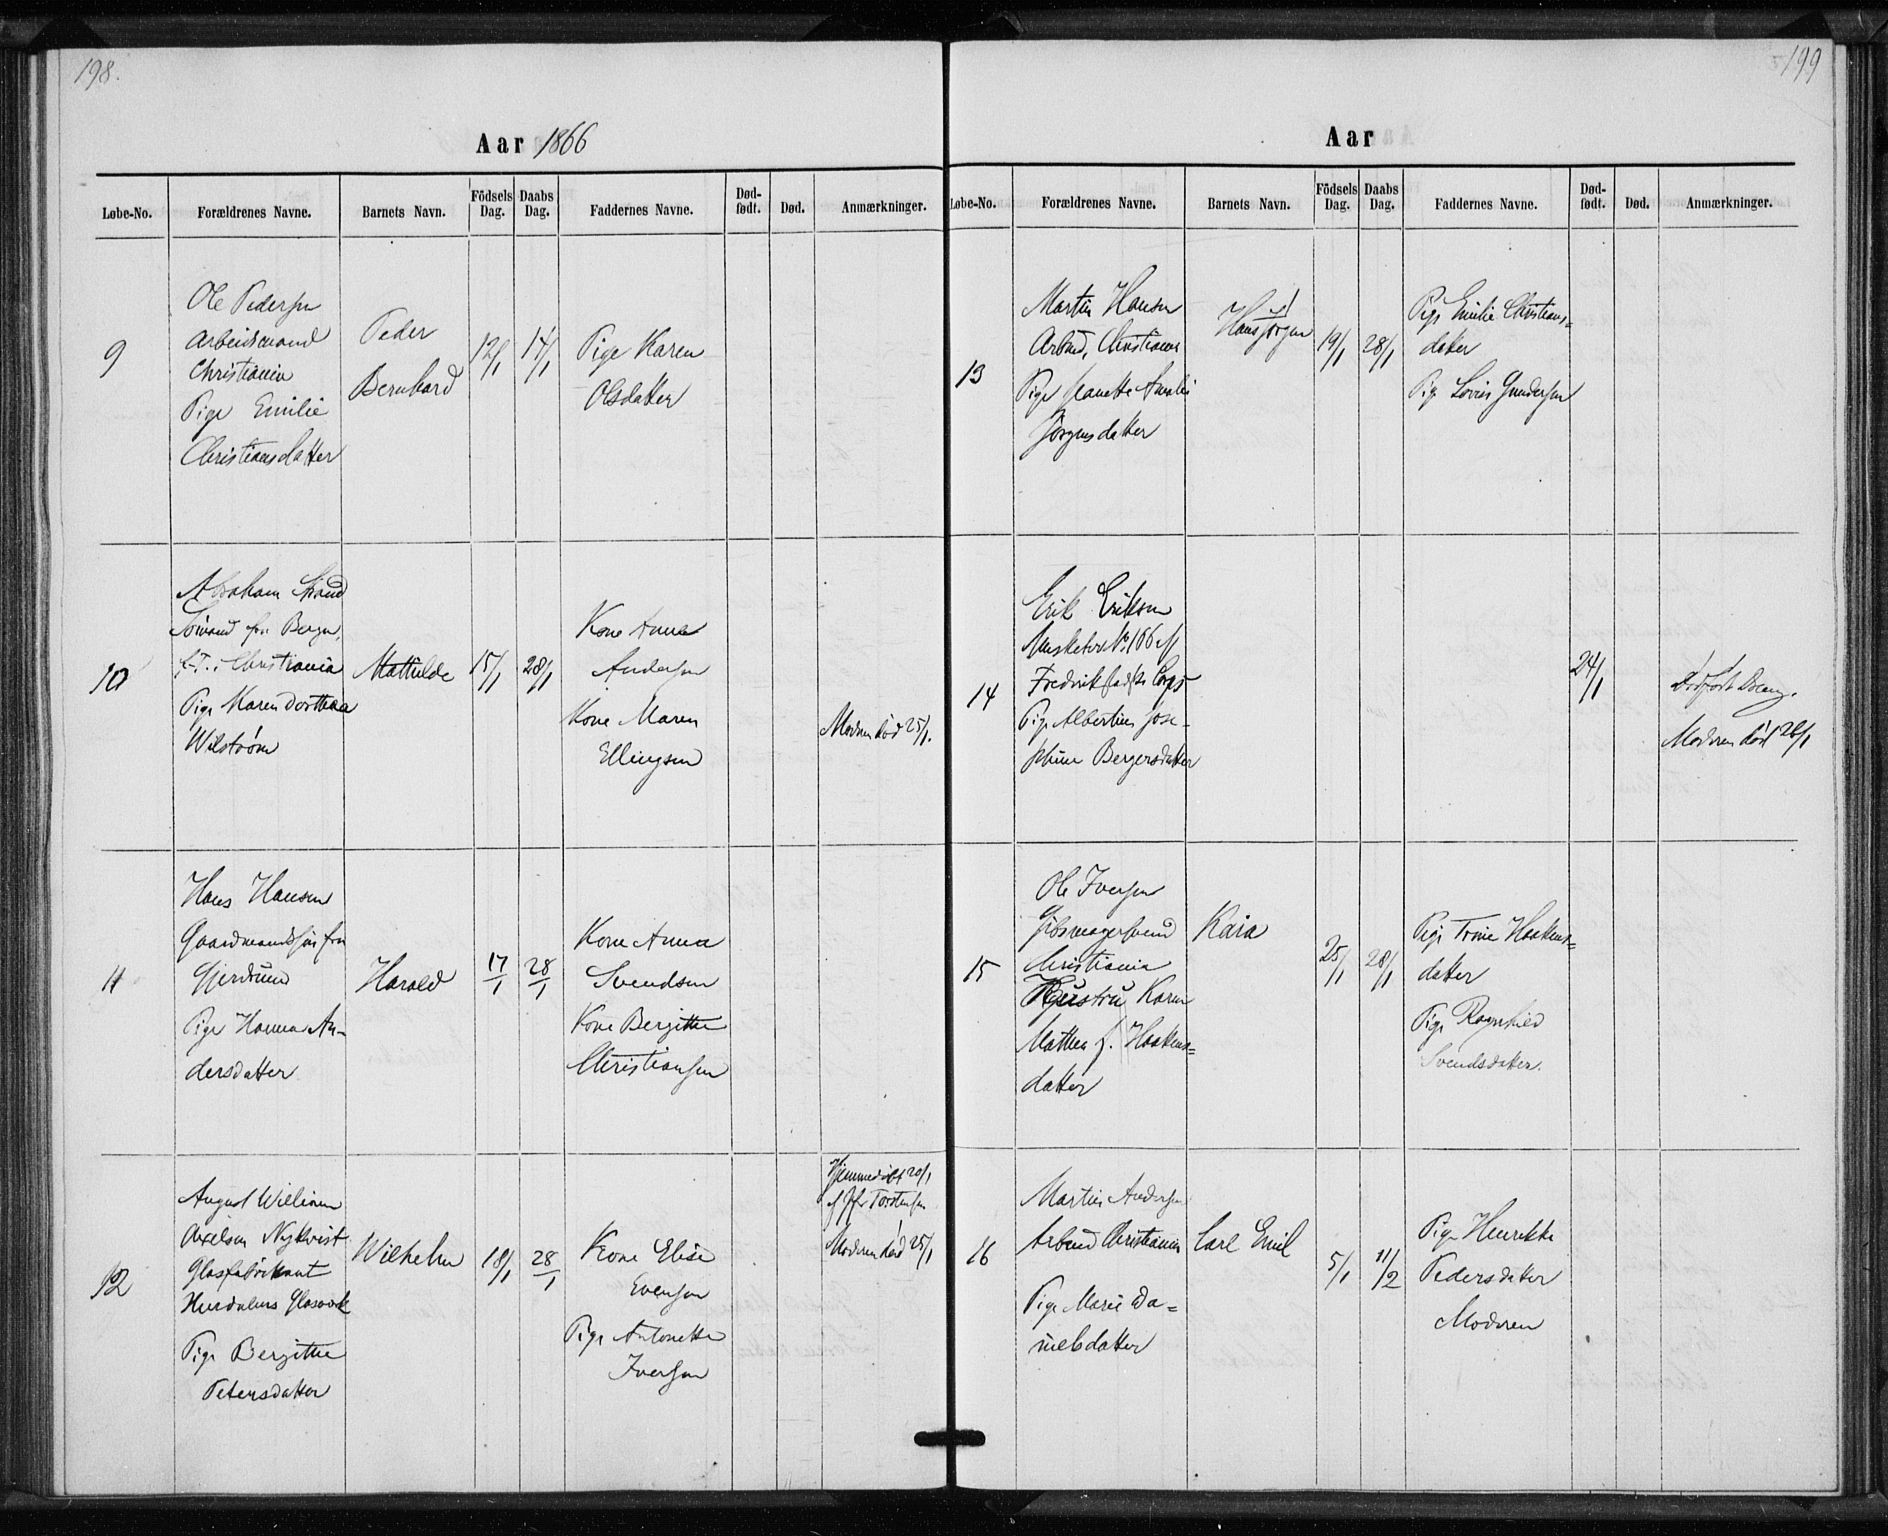 198.
Aar 1866
Løbe-No.
Forældrenes Navne.
Barnets Navn.
Födsels Dag.
Daabs Dag.
Faddernes Navne.
Død-født.
Død.
Anmærkninger.
9
Ole Pedersen
Arbeidsmand
Christiania
Pige Emilie
Christiansdatter
Peder
Bernhard
12/1
14/1
Pige Karen
Olsdatter
10
Abraham Strand
Sømand fra Bergen,
f. T. i Christiania
Pige Maren Dorthea
Wilstrøm
Mathilde
15/1
28/1
Kone Anne
Andersen
Kone Maren
Ellingsen
Moderen død 25/1.
11
Hans Hansen
Gaardmandssøn fra
Gjerdrum
Pige Hanna An-
dersdatter
Harald
17/1
28/1
Kone Anna
Svendsen
Kone Bergitte
Christiansen
12
August William
Axelson Nykvist
Glasfabrikant
Hurdalens Glasværk
Pige Bergitte
Petersdatter
Wilhelm
18/1
28/1
Kone Elise
Evensen
Pige Antonette
Iversen
Hjemmedøbt 20/1
af Jfr Torstensen
Moderen død 25/1
199
Aar
Løbe-No.
Forældrenes Navne.
Barnets Navn.
Födsels Dag.
Daabs Dag.
Faddernes Navne.
Død-født.
Død.
Anmærkninger.
13
Martin Hansen
Arbmd, Christiania
Pige Jeanette Amalie
Jørgensdatter
Hans Jørgen
19/1
28/1
Pige Emilie Christians=
datter
Pige Lovise Gundersen
14
Erik Eriksen
Musketer No 166 af
Fredrikstadske Corps
Pige Albertine Jose-
phine Bergersdatter
24/1
Dødfødt Dreng.
Moderen død 26/1
15
Ole Iversen
Gjørtmagersvend
Christiania
Hustru Karen
Mathea f. Haakens=
datter
Kaia
25/1
28/1
Pige Trine Haakens=
datter
Pige Ragnhild
Svendsdatter.
16
Martin Andersen
Arbmd Christiania
Pige Marie Da=
nielsdatter
Carl Emil
5/1
11/2
Pige Henrikke
Pedersdatter
Moderen